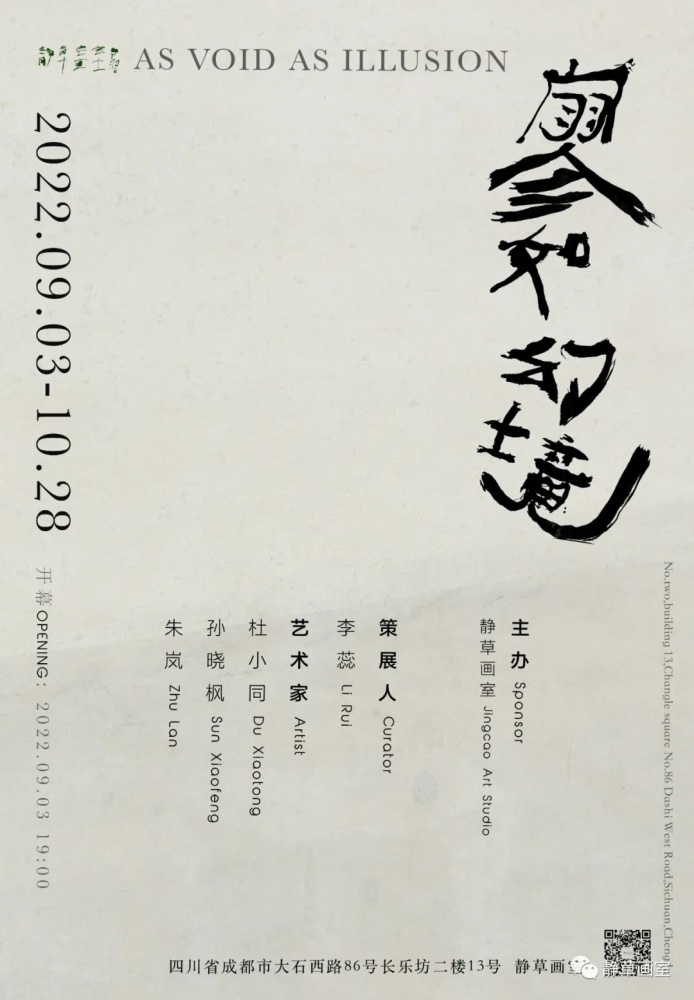 AS VOID AS ILLUSION
寥如幻境
2022.09.03-10.28
开幕OPENING: 2022.09.03 19:00
主办 Sponsor
静草画室 Jingcao Art Studio
策展人 Curator
李蕊 Li Rui
艺术家 Artist
杜小同 Du Xiaotong
孙晓枫 Sun Xiaofeng
朱岚 Zhu Lan
No.two,building 13,Changle square No.86 Dashi West Road,Sichuan,
四川省成都市大石西路86号长乐坊二楼13号 静草画室
静草画室